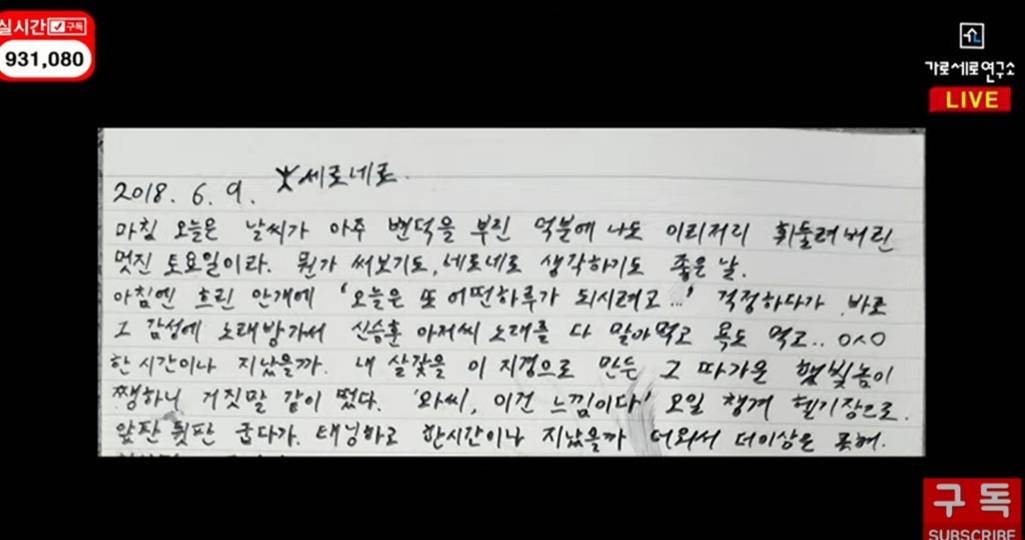 실시간 구독
931,080
가로세로연구소
LIVE
2018. 6. 9. 세로네로.
마침 오늘은 날씨가 아주 변덕을 부린 덕분에 나도 이리저리 휘둘려버린
멋진 토요일이라. 뭔가 써보기도, 세로네로 생각하기도 좋은 날.
아침엔 흐린 안개에 '오늘은 또 어떤하루가 되시려고...' 걱정하다가 바로
그 감성에 노래방가서 신승훈 아저씨 노래를 다 말아먹고 욕도 먹고.. 0^0
한 시간이나 지났을까. 내 살갗을 이 지경으로 만든 그 따가운 햇빛놈이
쨍하니 거짓말 같이 떴다. '와씨, 이건 느낌이다' 오일 챙겨 헬기장으로.
앞판 뒷판 굽다가. 태닝하고 한시간이나 지났을까 더워서 더이상은 못해.
구독
SUBSCRIBE